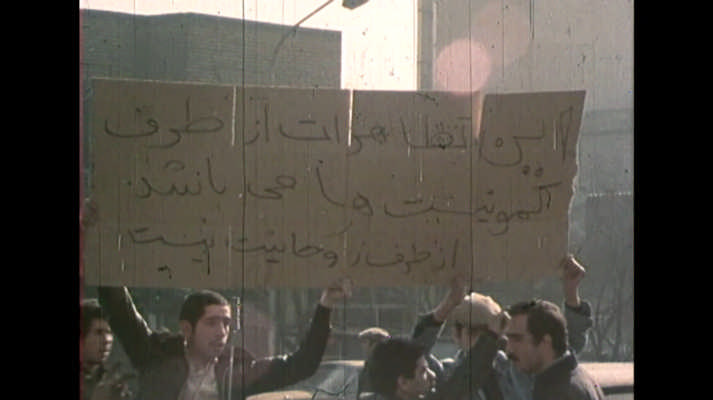 این تظاهرات از طرف
کمونیست ها می باشد.
از طرف روحانیت نیست